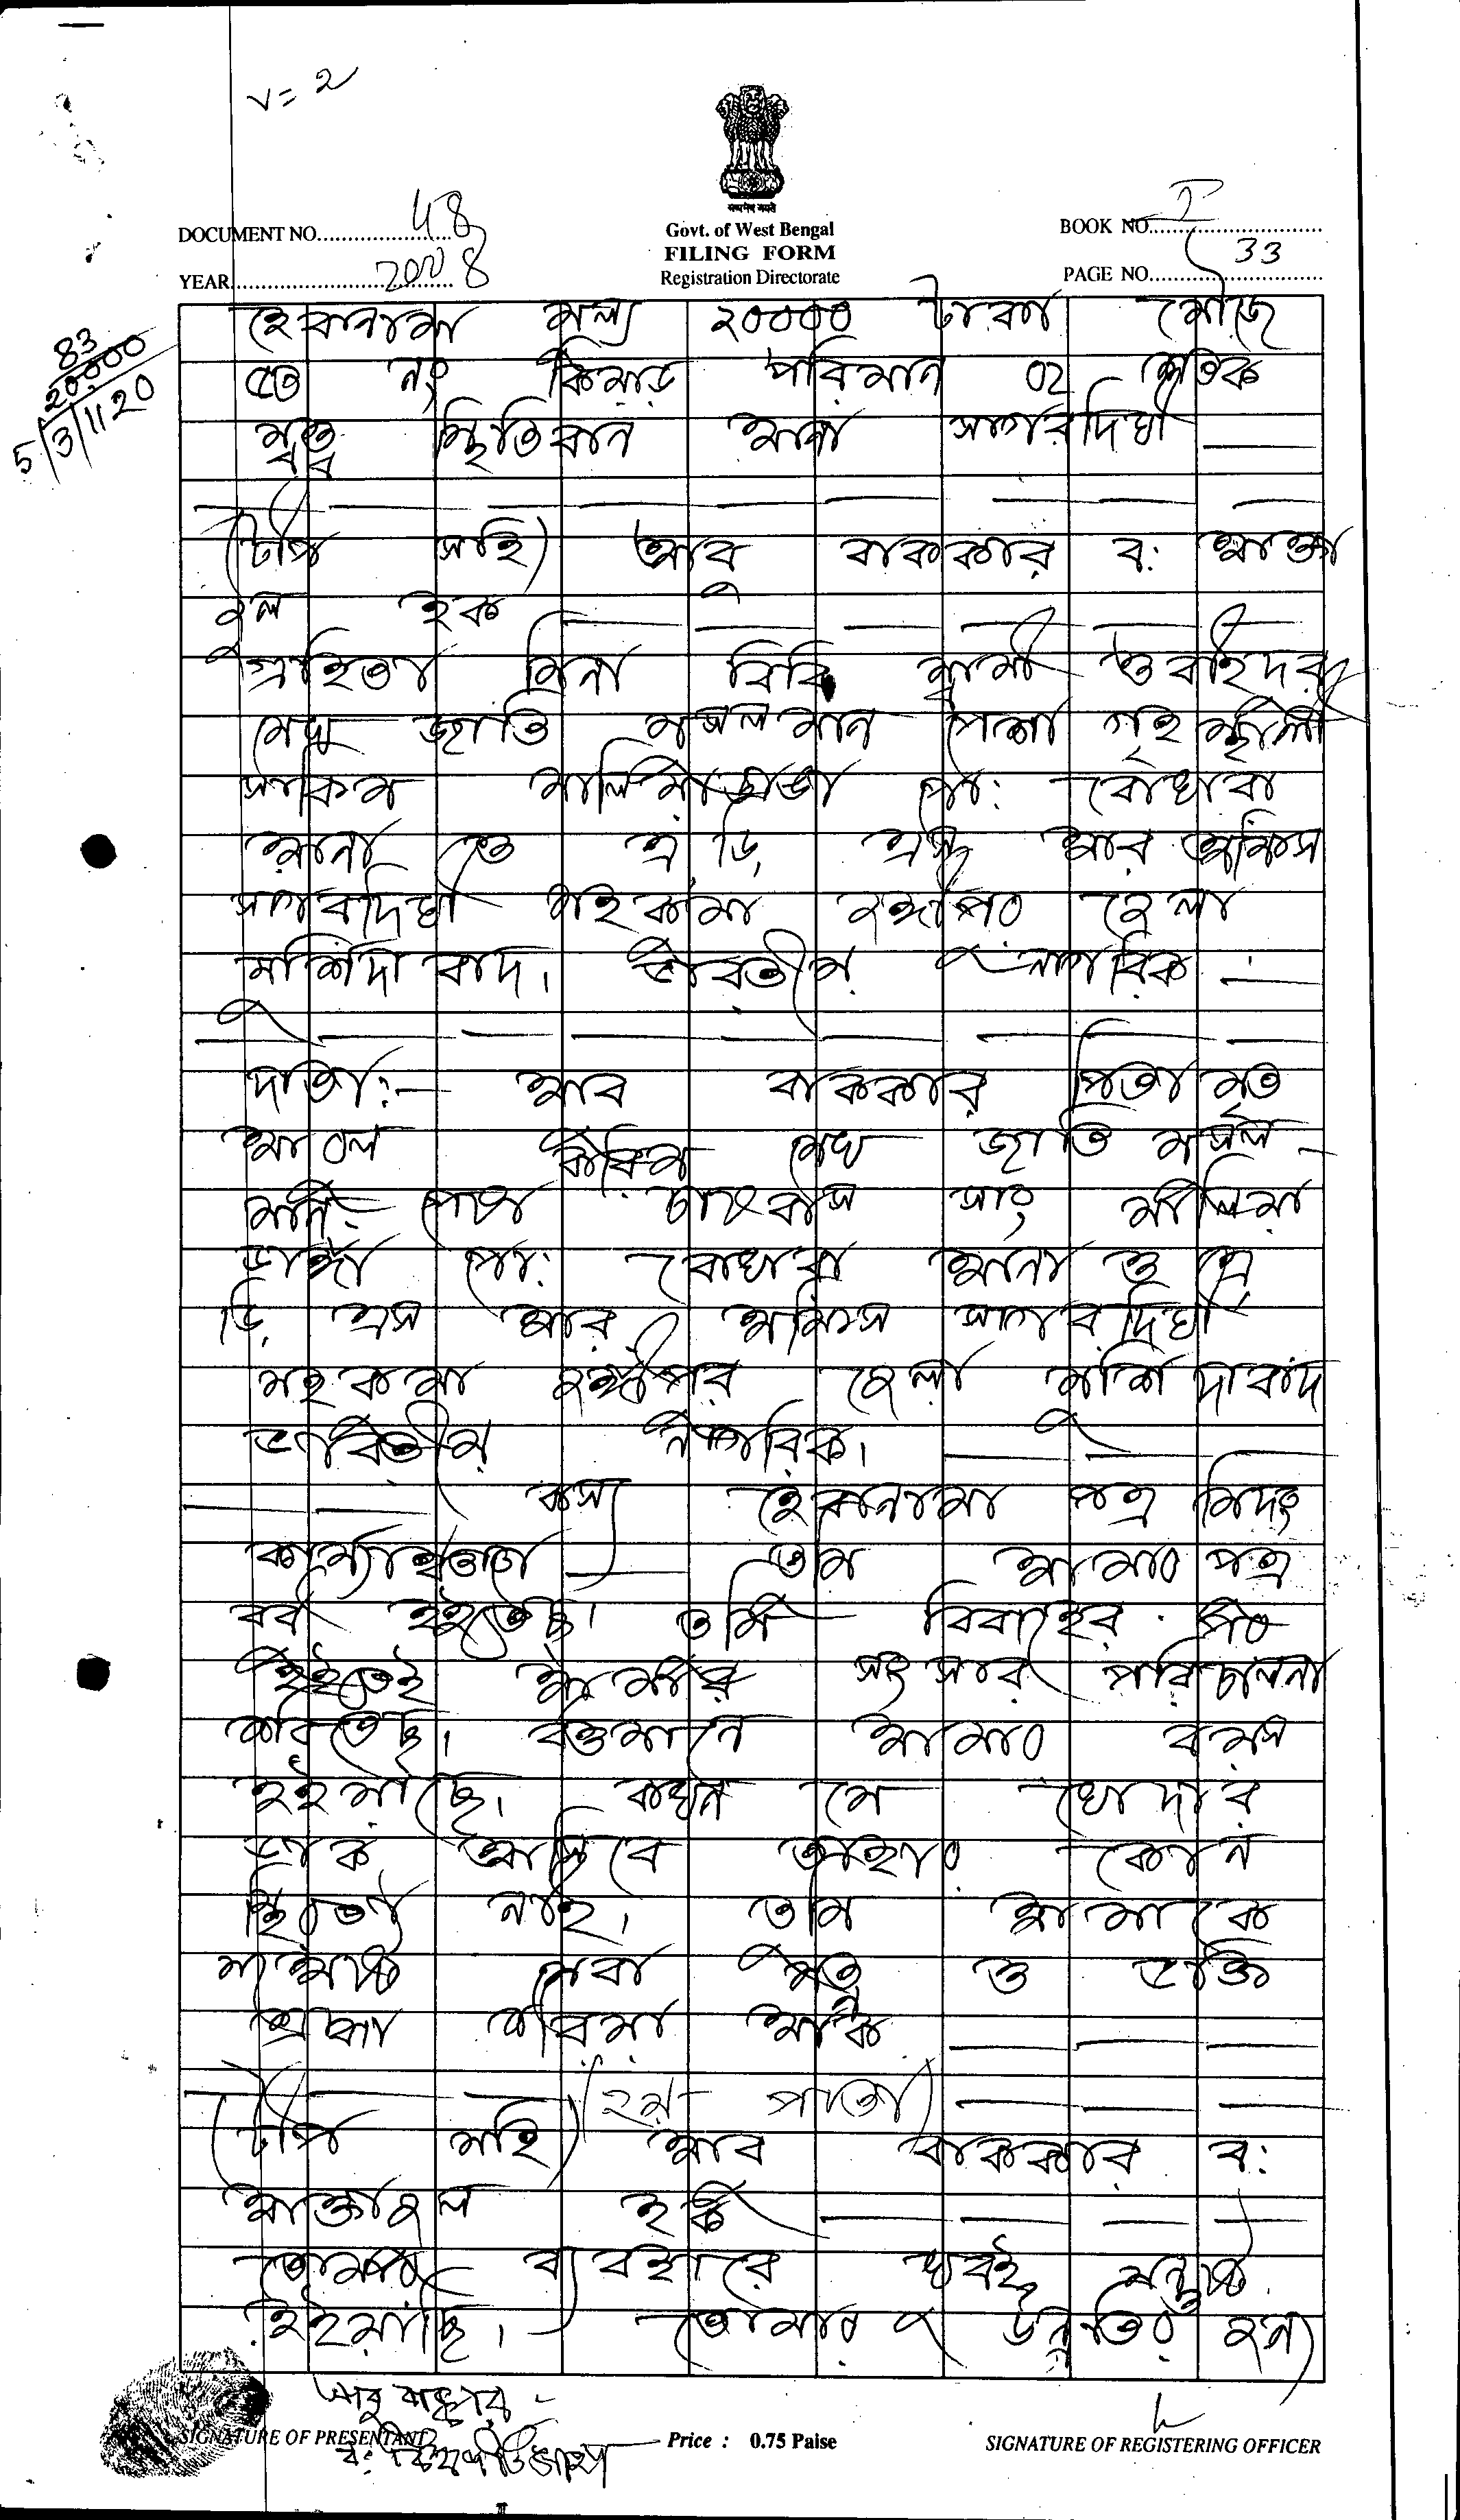 v = 2
DOCUMENT NO. 48
YEAR 2008
सत्यमेव जयते
Govt. of West Bengal
FILING FORM
Registration Directorate
BOOK NO. I
PAGE NO. 33
83
20000
5/3/1120
হেবানামা মূল্য ২০০০০ টাকা মৌজে
নং পরিমান 02 শতক
স্বত্ব স্থিতিবান থানা সাগরদিঘী
(টীপ সহি) আবু বাককার ব: আক্তা
রুল হক
গ্রহিতা মিনা বিবি স্বামী
সেখ জাতি মুসলমান পেশা গৃহস্থালী
সাকিম পো: বোখারা
থানা ও এ, ডি, এস, আর অফিস
সাগরদিঘী মহকামা জঙ্গীপুর জেলা
মুর্শিদাবাদ। ভারতীয় নাগরিক
দাতা:- আবু বাককার পিতা মৃত
সেখ জাতি মুসল-
মান পেশা চাষবাস সাং
ডাঙ্গা পো: বোখারা থানা ও এ
ডি, এস আর অফিস সাগরদিঘী
মহকামা জঙ্গীপুর জেলা মুর্শিদাবাদ
ভারতীয় নাগরিক।
কস্য হেবানামা পত্র মিদং
কার্য্যাঞ্চাগে তুমি আমার পুত্র
বধু হইতেছ। তুমি বিবাহের পর
হইতেই আমার সংসার পরিচালনা
করিতেছ। বর্ত্তমানে আমার বয়স
হইয়াছে। কখন যে খোদার
ডাক আসিবে তাহার কোন
স্থিরতা নাই। তুমি আমাকে
যথেষ্ট সেবা যত্ন ও ভক্তি
শ্রদ্ধা করিয়া থাক
(২য় পাতা)
(টীপ সহি) আবু বাককার ব:
আক্তারুল হক
তোমার ব্যবহারে খুবই সন্তুষ্ট
হইয়াছি। তোমার উন্নতির জন্য
আবু বাক্কার
SIGNATURE OF PRESENTANT
Price : 0.75 Paise
SIGNATURE OF REGISTERING OFFICER